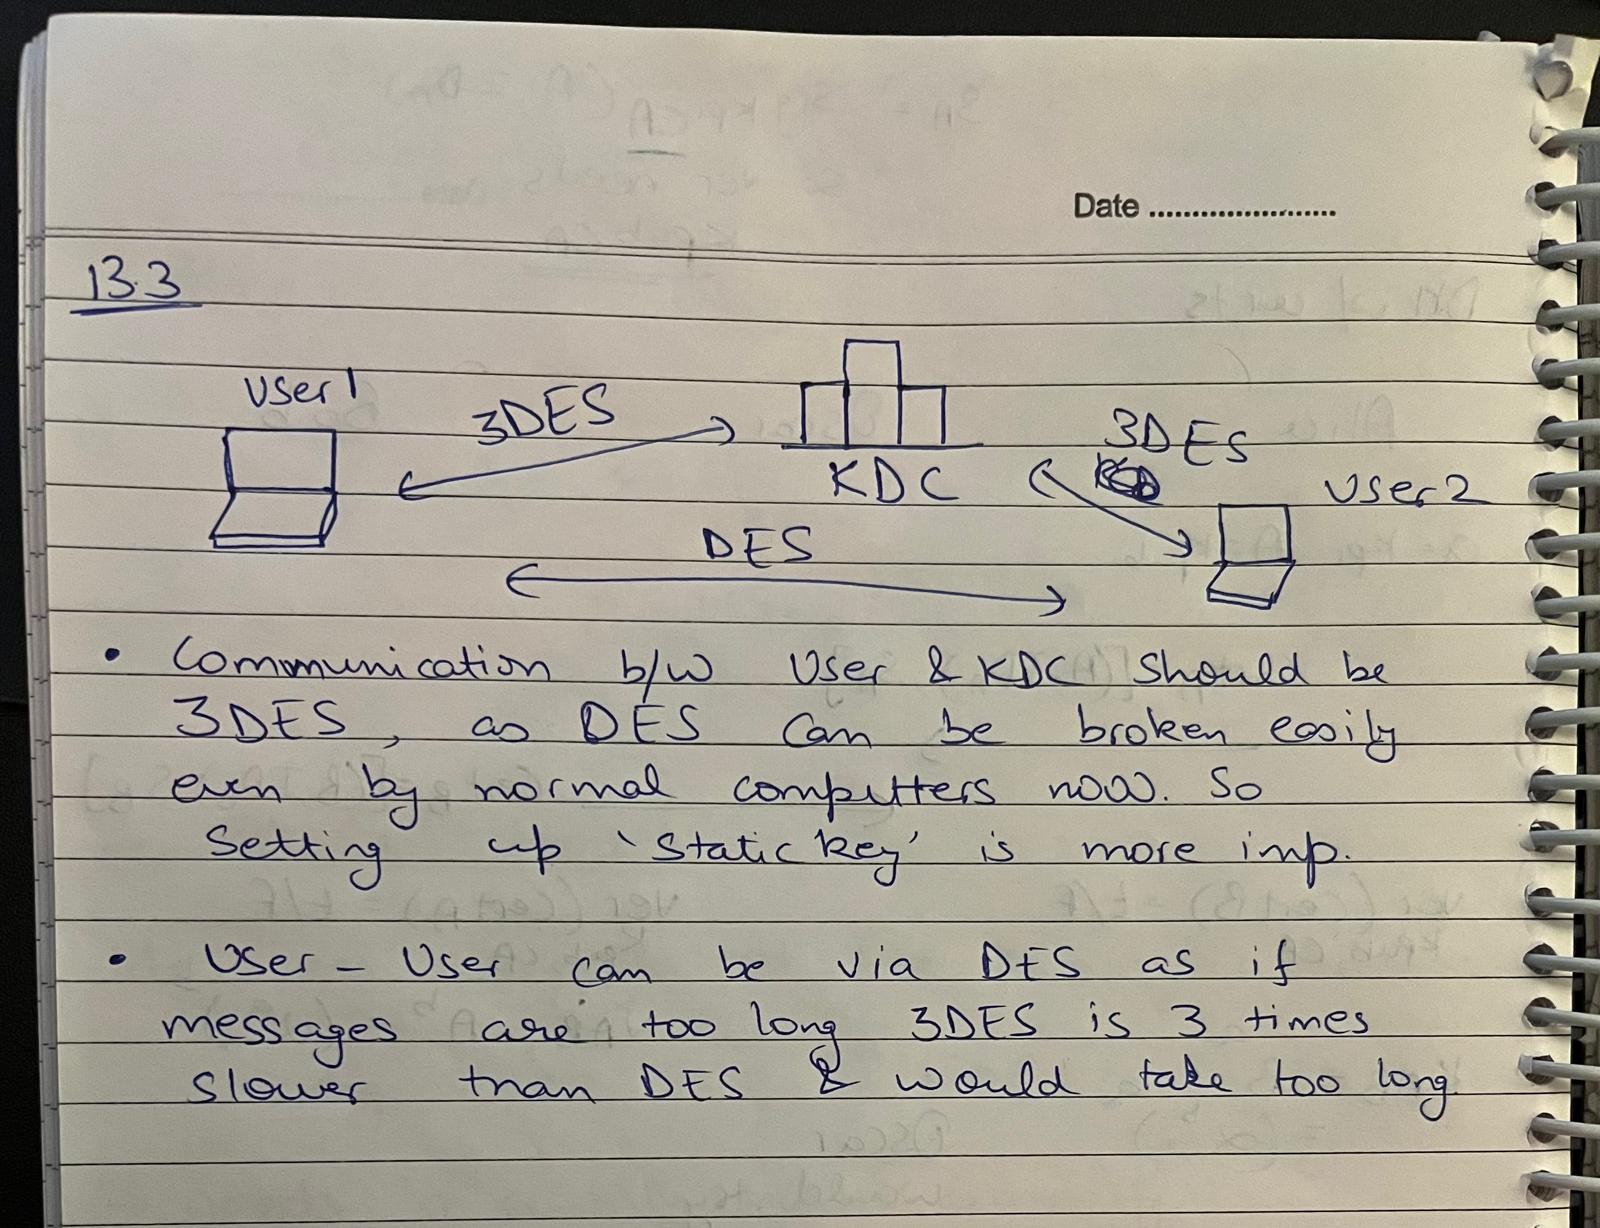 Date ........................
13.3
User 1
3DES
KDC
3DES
User 2
DES
• Communication b/w User & KDC should be
3DES, as DES can be broken easily
even by normal computters now. So
setting up 'static key' is more imp.
• User - User can be via DES as if
messages are too long 3DES is 3 times
slower than DES & would take too long